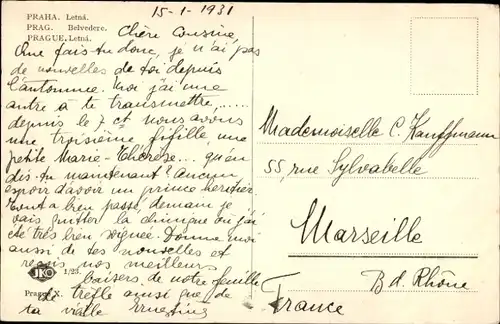 PRAHA. Letná.
PRAG. Belvedere.
PRAGUE. Letná.
15-1-1931
Chère Cousine,
Que fais-tu donc, je n'ai pas
de nouvelles de toi depuis
l'automne. Moi j'ai une
autre à te transmettre,.....
depuis le 7 ct nous avons
une troisième fifille, une
petite Marie-Thérèse... qu'en
dis-tu maintenant! aucun
espoir d'avoir un prince héritier.
Tout a bien passé, demain je
vais quitter la clinique où j'ai
été très bien soignée. Donne moi
aussi de tes nouvelles et
reçois nos meilleurs
baisers de notre feuille
de trèfle ainsi que de
ta vieille Ernestine
JKO
1/23.
Prague X.
Mademoiselle C. Kauffmann
55 rue Sylvabelle
Marseille
B d. Rhône
France